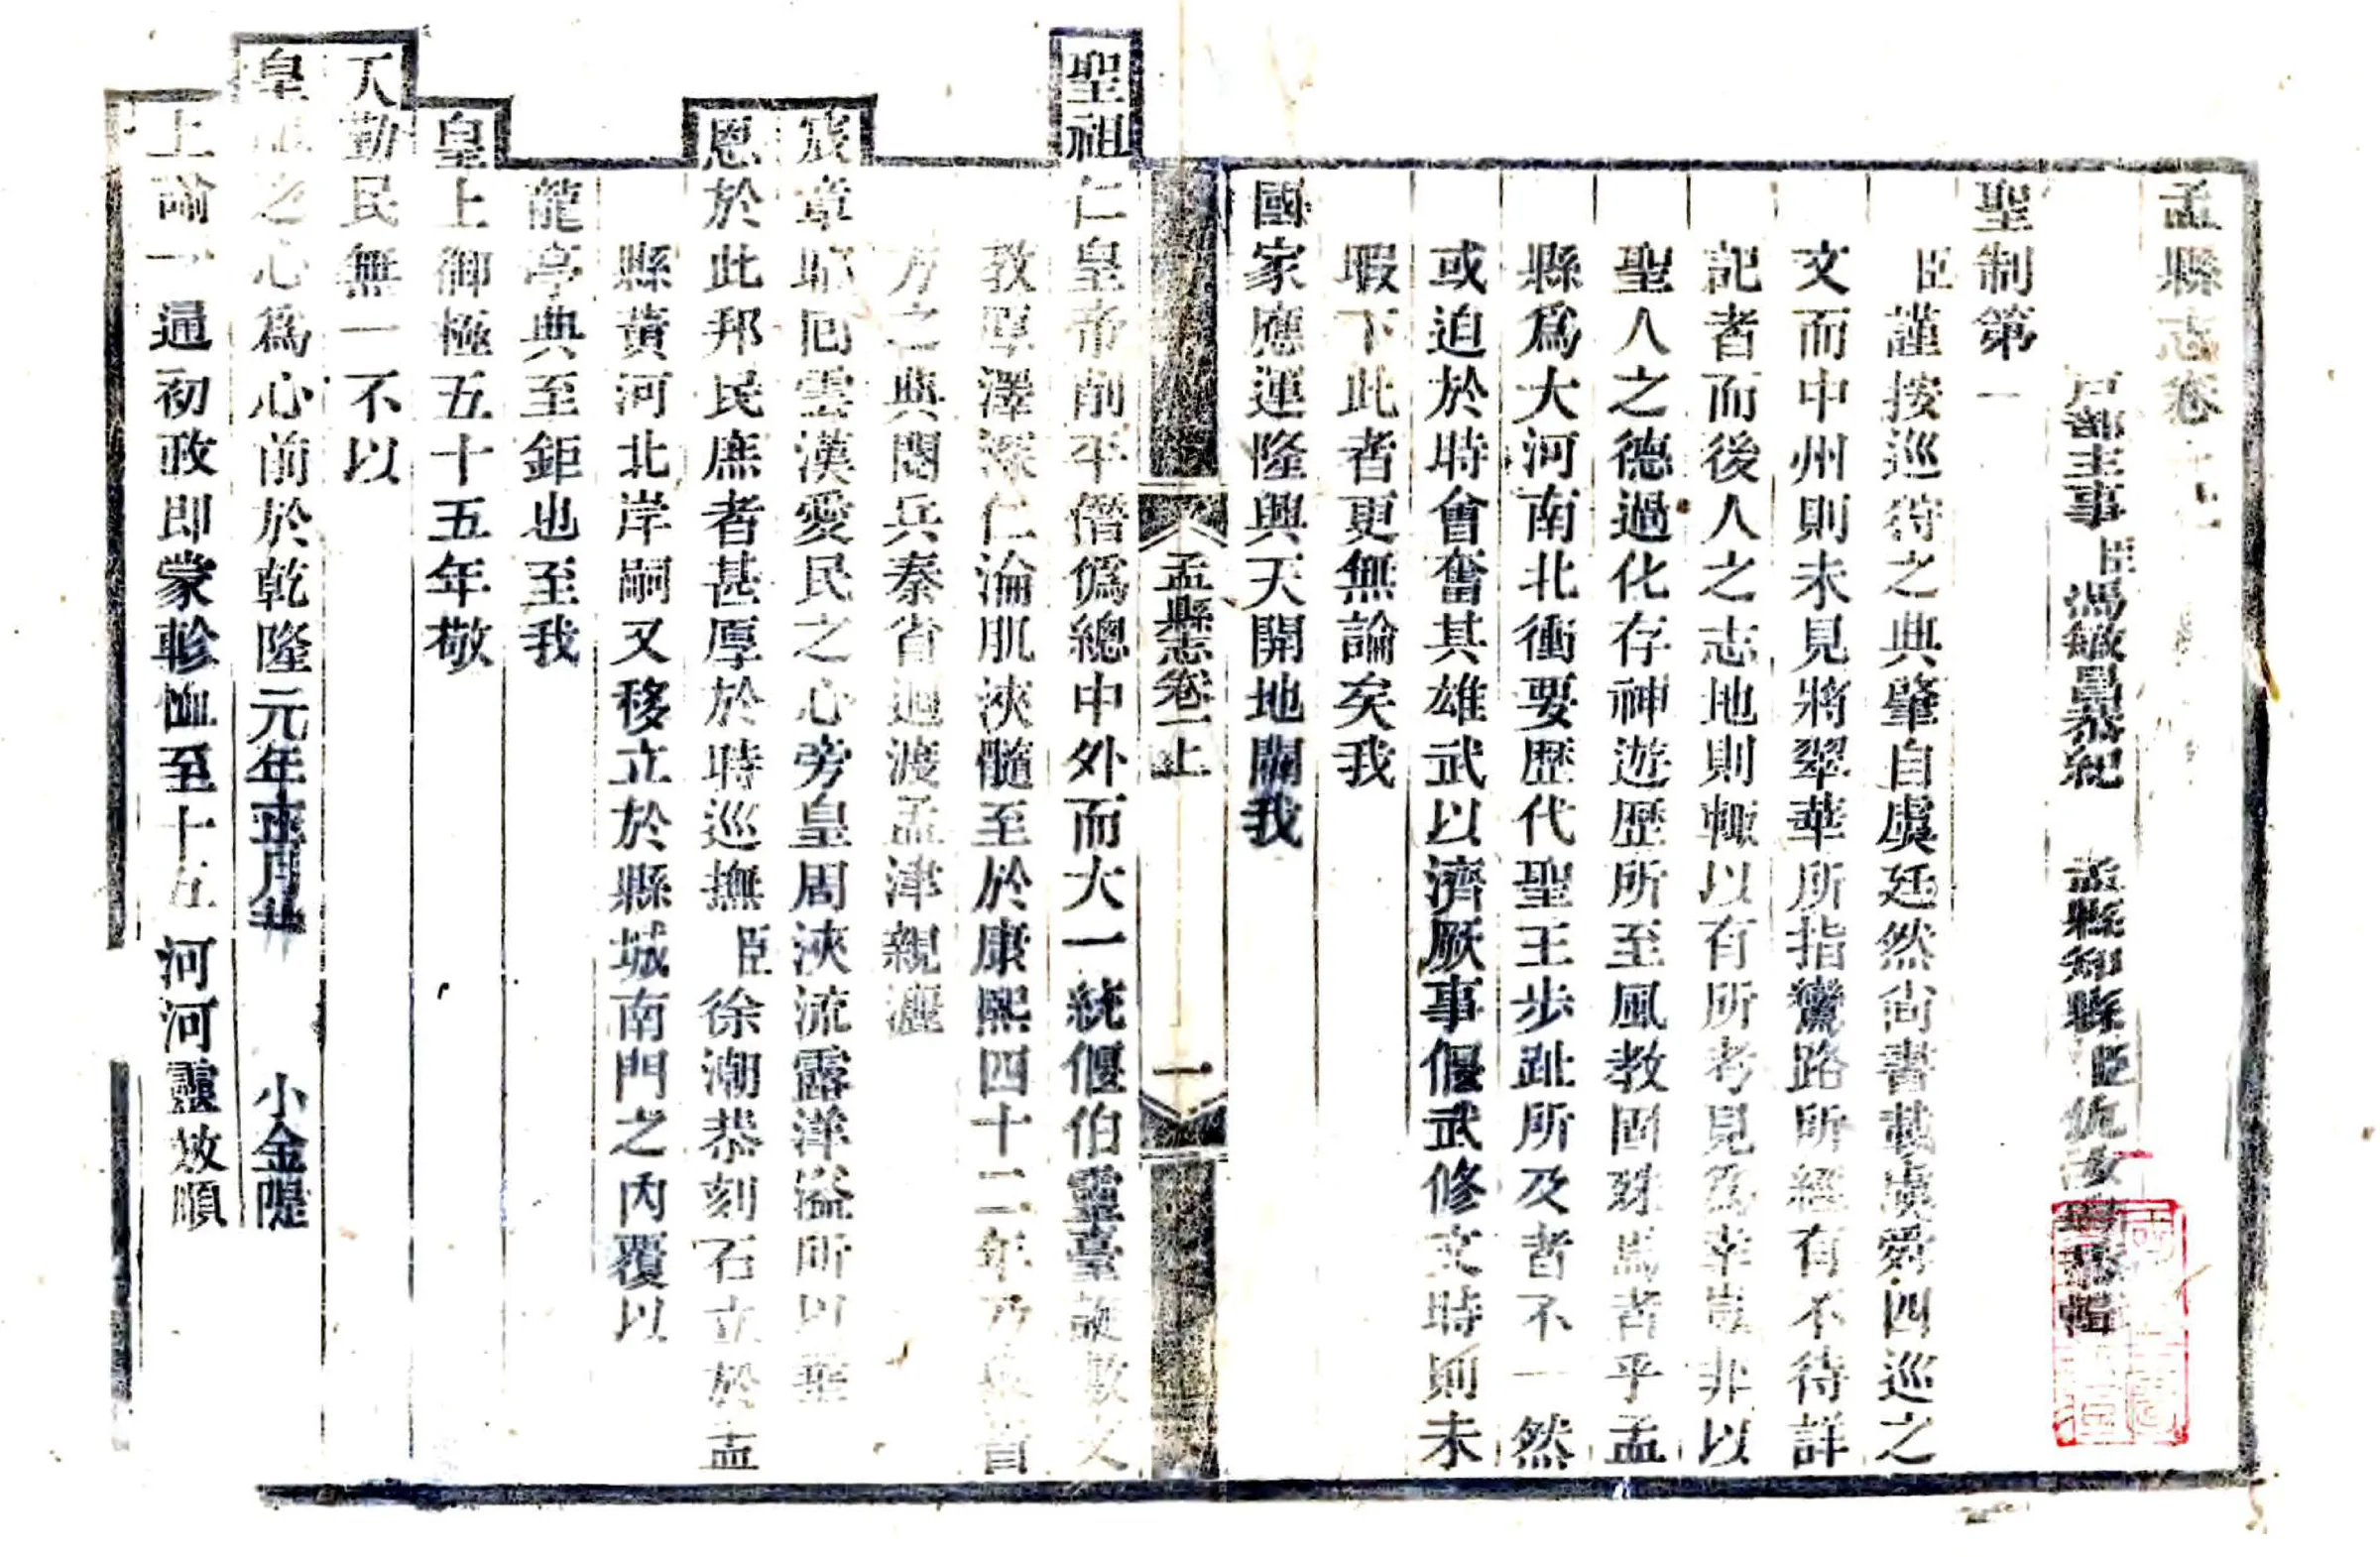 孟縣志卷一上
戶部主事臣馮敏昌恭紀　孟縣知縣臣仇汝瑚恭輯
聖制第一
臣謹按巡狩之典肇自虞廷然尚書載虞舜四巡之
文而中州則未見將翠華所指鸞路所經有不待詳
記者而後人之志地則輙以有所考見為幸豈非以
聖人之德過化存神遊歷所至風教固殊焉者乎孟
縣爲大河南北衝要歷代聖王步趾所及者不一然
或迫於時會奮其雄武以濟厥事偃武修文時則未
暇下此者更無論矣我
國家應運隆興天開地闢我
孟縣志卷一上
一
聖祖仁皇帝削平僭僞總中外而大一統偃伯靈臺誕敷文
教覃澤深仁淪肌浹髓至於康熙四十二年乃
方之典閱兵秦省過渡孟津親灑
宸章昭回雲漢愛民之心旁皇周浹流露洋溢所以聖
恩於此邦民庶者甚厚於時巡撫臣徐潮恭刻石立於孟
縣黃河北岸嗣又移立於縣城南門之內覆以
龍亭典至鉅也至我
皇上御極五十五年敬
天勤民無一不以
皇祖之心爲心前於乾隆元年正月廿　小金隄
上諭一通初政即蒙軫恤至十五　河河靈效順